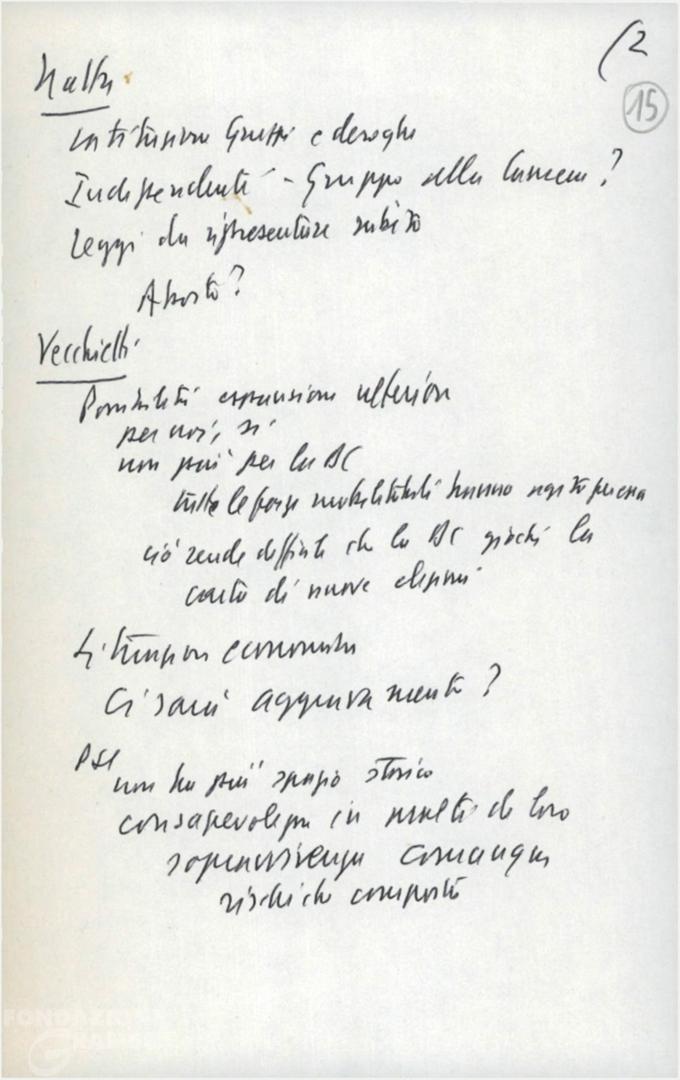 (2
15
Natta
Costituzione Gruppi e deroghe
Indipendenti - Gruppo alla Camera?
Leggi da ripresentare subito
Aborto?
Vecchietti
Possibilità espansione ulteriore
per noi, sì
non più per la DC
tutte le forze mobilitabili hanno
ciò rende difficile che la DC giochi la
carta di nuove elezioni
Situazione economica
Ci sarà aggravamento?
PSI
non ha più spazio storico
consapevolezza in molti di loro
sopravvivenza comunque
rischi che comporta
FONDAZIONE
GRAMSCI